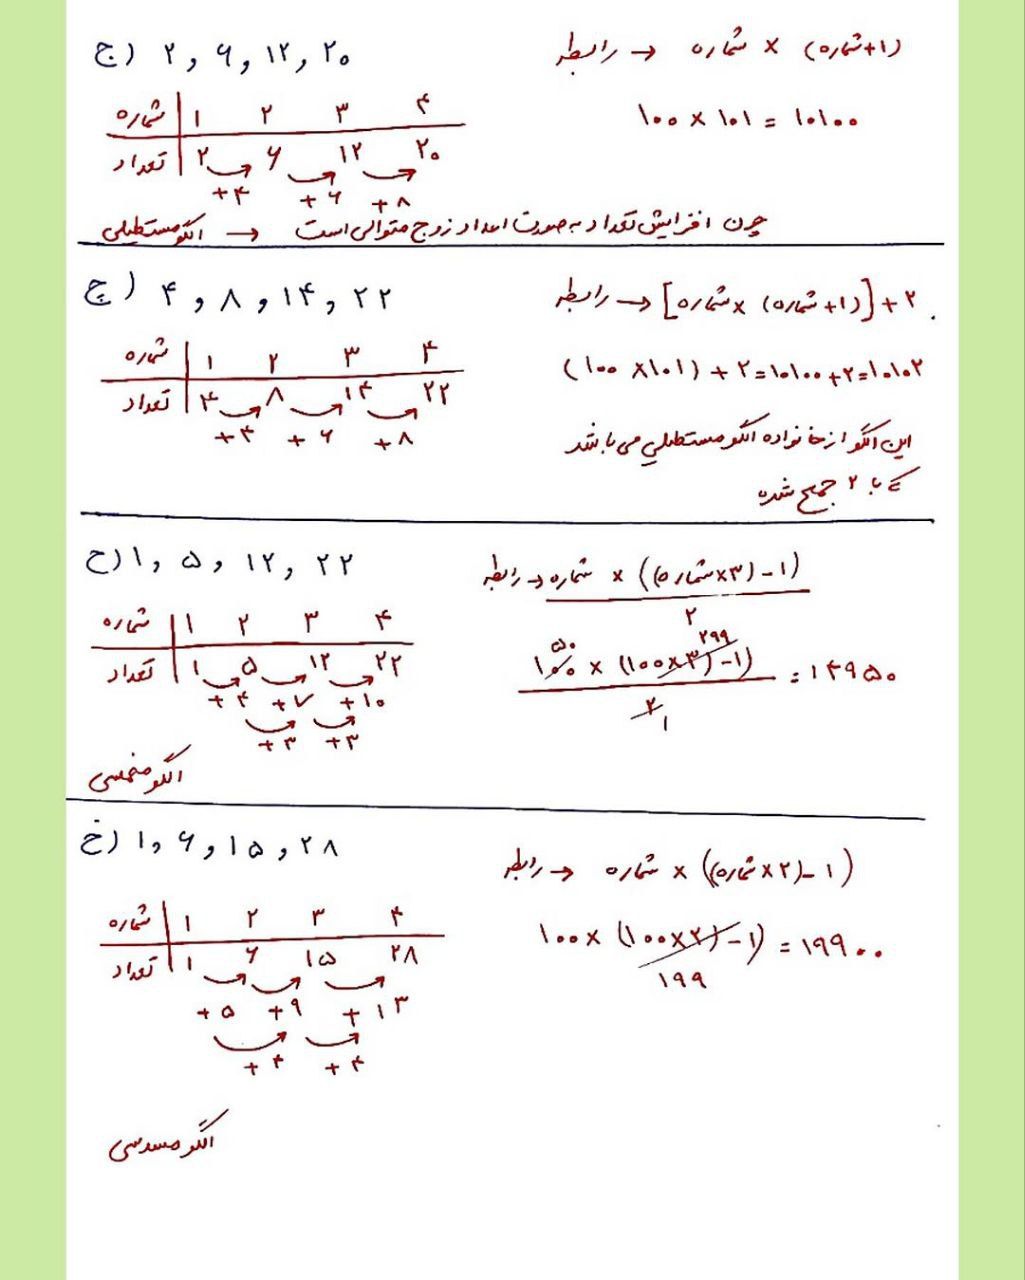 ج) ۲ , ۶ , ۱۲ , ۲۰
رابطه → شماره × (شماره+۱)
۱۰۰ × ۱۰۱ = ۱۰۱۰۰
شماره | ۱ ۲ ۳ ۴
تعداد | ۲ ۶ ۱۲ ۲۰
+۴ +۶ +۸
چون افزایش تعداد به صورت اعداد زوج متوالی است → الگو مستطیلی
چ) ۴ , ۸ , ۱۴ , ۲۲
رابطه → [شماره × (شماره+۱)] + ۲
(۱۰۰ × ۱۰۱) + ۲ = ۱۰۱۰۰ + ۲ = ۱۰۱۰۲
شماره | ۱ ۲ ۳ ۴
تعداد | ۴ ۸ ۱۴ ۲۲
+۴ +۶ +۸
این الگو از خانواده الگو مستطیلی می باشد
که با ۲ جمع شده
ح) ۱ , ۵ , ۱۲ , ۲۲
رابطه → شماره × ((شماره×۳) -۱)
۲
شماره | ۱ ۲ ۳ ۴
تعداد | ۱ ۵ ۱۲ ۲۲
+۴ +۷ +۱۰
+۳ +۳
۵۰ ۲۹۹
۱۰۰ × (۱۰۰×۳) -۱) = ۱۴۹۵۰
۲ ۱
الگو مخمسی
خ) ۱ , ۶ , ۱۵ , ۲۸
رابطه → شماره × ((شماره×۲) -۱)
شماره | ۱ ۲ ۳ ۴
تعداد | ۱ ۶ ۱۵ ۲۸
+۵ +۹ +۱۳
+۴ +۴
۱۰۰ × (۱۰۰×۲) -۱) = ۱۹۹۰۰
۱۹۹
الگو مسدسی